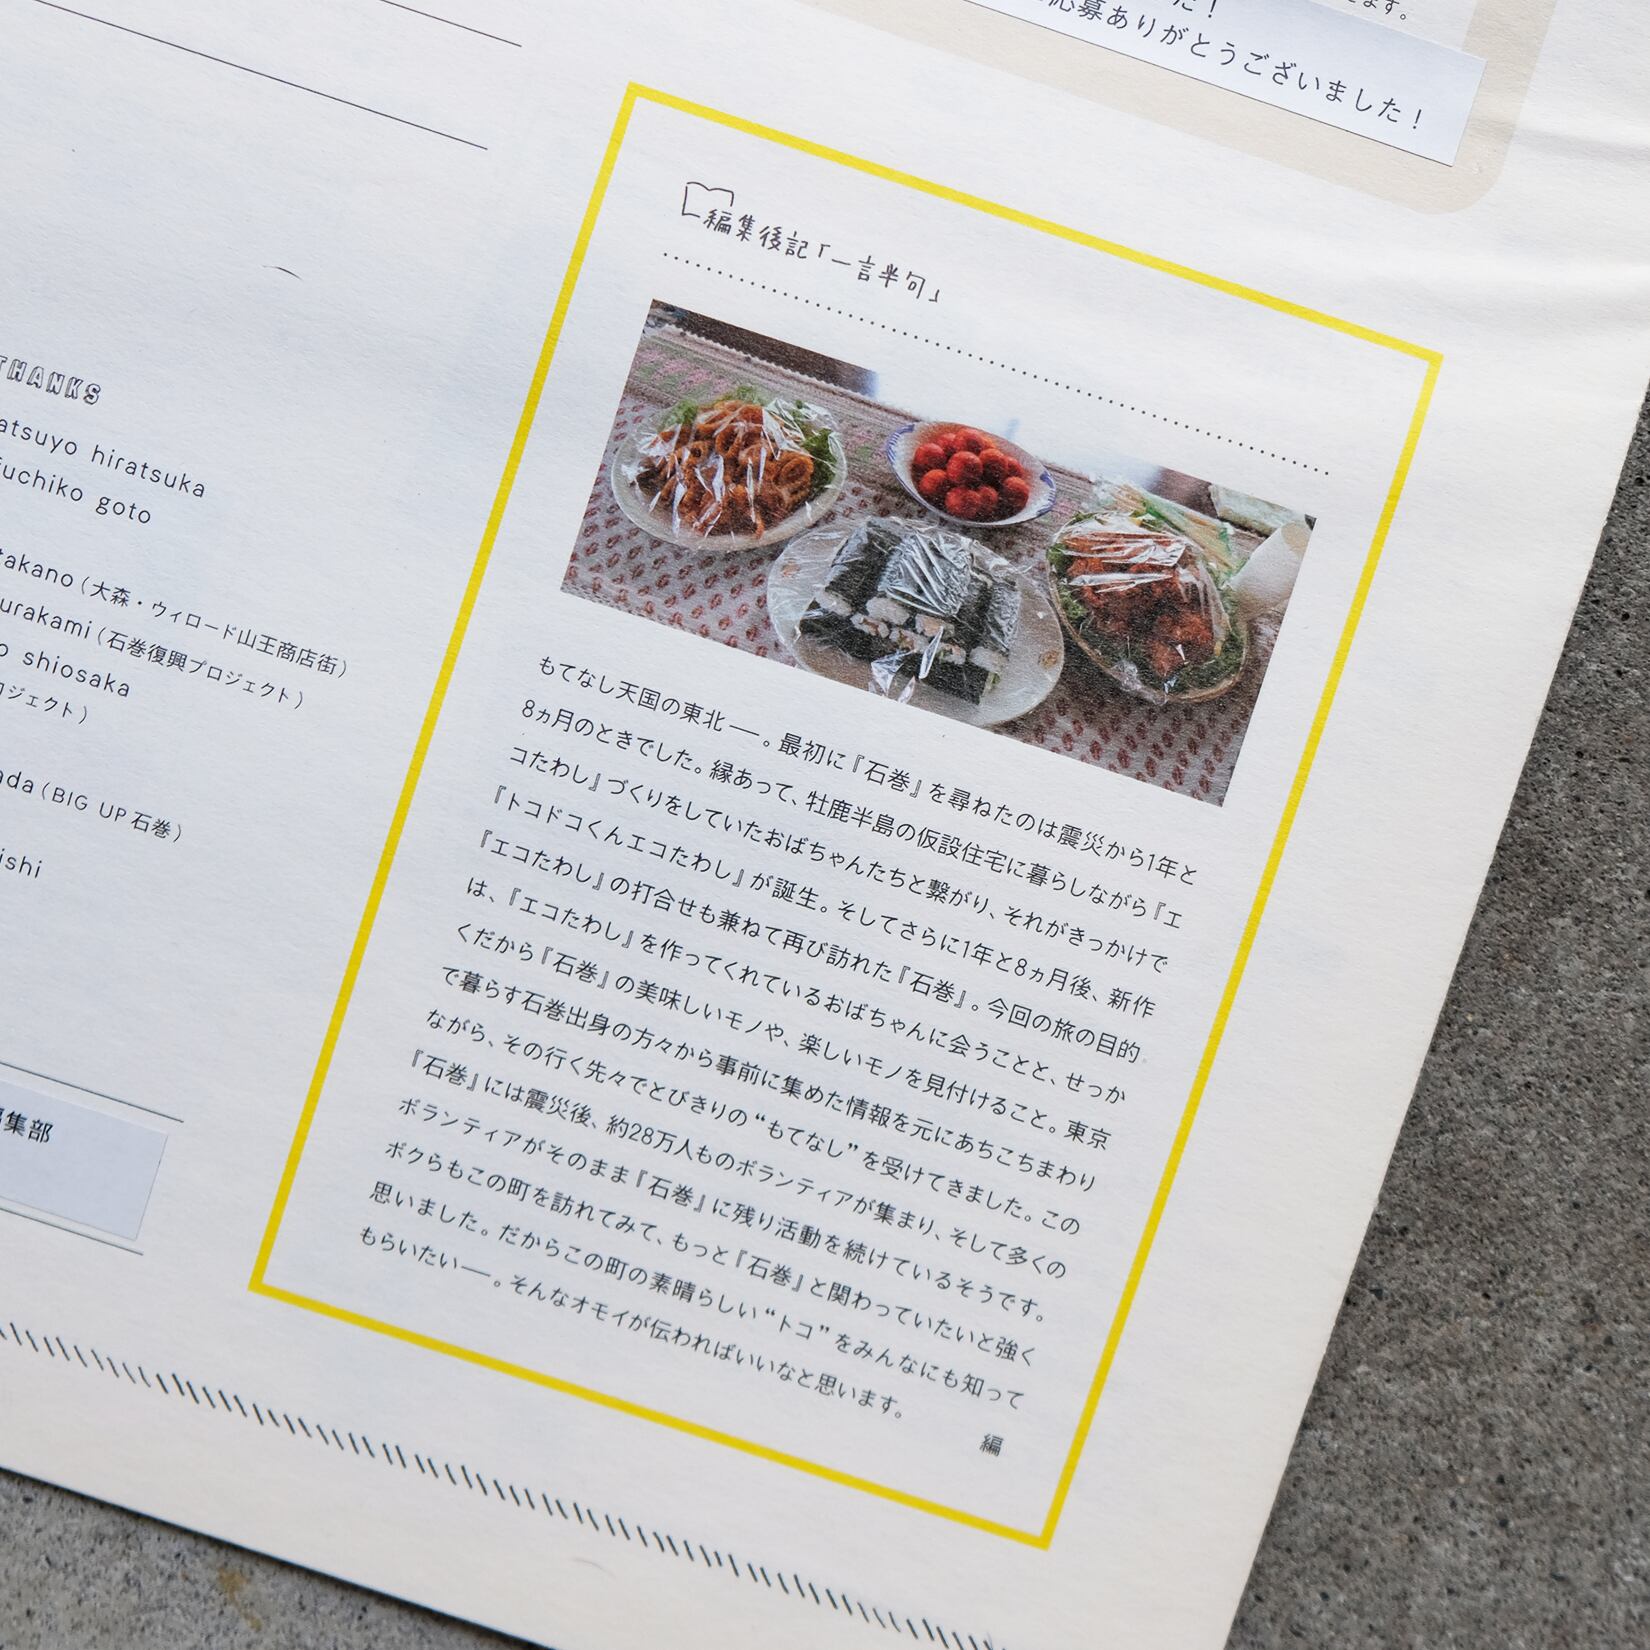 ます。
た！
応募ありがとうございました！
THANKS
atsuyo hiratsuka
fuchiko goto
takano（大森・ウィロード山王商店街）
urakami（石巻復興プロジェクト）
o shiosaka
ロジェクト）
ada（BIG UP 石巻）
ishi
編集部
編集後記「一言半句」
もてなし天国の東北——。最初に『石巻』を尋ねたのは震災から1年と
8ヵ月のときでした。縁あって、牡鹿半島の仮設住宅に暮らしながら『エ
コたわし』づくりをしていたおばちゃんたちと繋がり、それがきっかけで
『トコドコくんエコたわし』が誕生。そしてさらに1年と8ヵ月後、新作
『エコたわし』の打合せも兼ねて再び訪れた『石巻』。今回の旅の目的
は、『エコたわし』を作ってくれているおばちゃんに会うことと、せっか
くだから『石巻』の美味しいモノや、楽しいモノを見付けること。東京
で暮らす石巻出身の方々から事前に集めた情報を元にあちこちまわり
ながら、その行く先々でとびきりの“もてなし”を受けてきました。この
『石巻』には震災後、約28万人ものボランティアが集まり、そして多くの
ボランティアがそのまま『石巻』に残り活動を続けているそうです。
ボクらもこの町を訪れてみて、もっと『石巻』と関わっていたいと強く
思いました。だからこの町の素晴らしい“トコ”をみんなにも知って
もらいたい——。そんなオモイが伝わればいいなと思います。
編